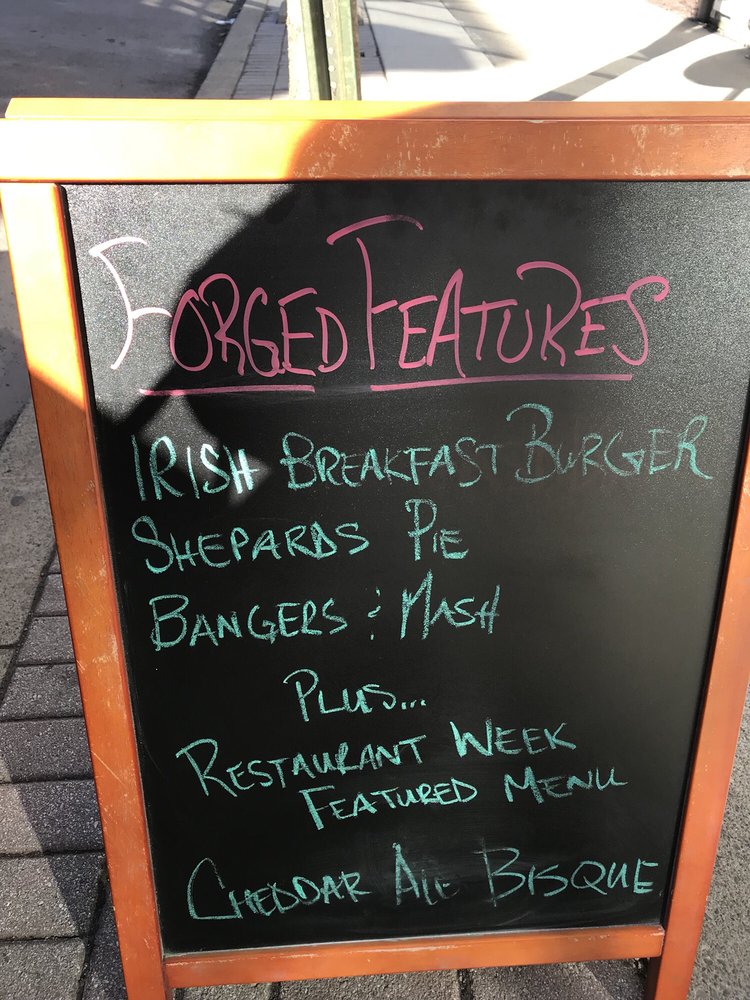 FORGED FEATURES
IRISH BREAKFAST BURGER
SHEPARDS PIE
BANGERS & MASH
PLUS...
RESTAURANT WEEK
FEATURED MENU
CHEDDAR ALE BISQUE